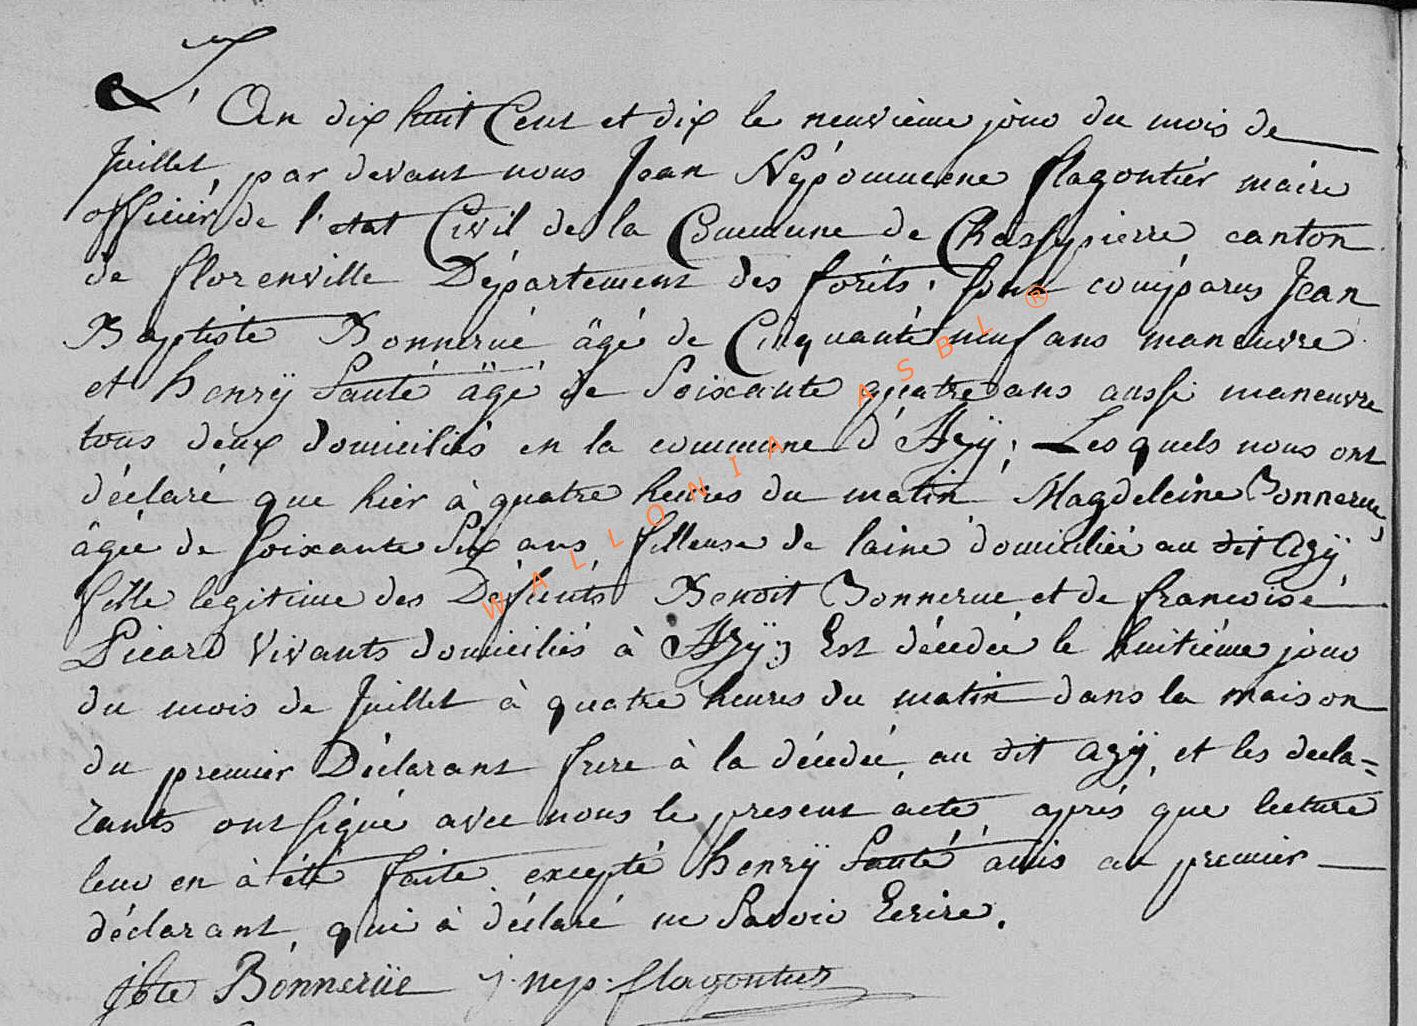 L'An dix huit Cent et dix le neuvieme jour du mois de
Juillet, par devant nous Jean Népomucene flagontier maire
officier de l'état Civil de la Commune de Chassepierre canton
de florenville Département des forêts, sont comparus Jean
Baptiste Bonnerue âgé de Cinquante neuf ans maneuvre
et henrÿ Santé âgé de Soixante quatre ans aussi maneuvre
tous deux domiciliés en la commune d'Azÿ; Lesquels nous ont
déclaré que hier à quatre heures du matin, Magdeleine Bonnerue,
âgée de soixante Six ans, filleuse de laine domiciliée au dit azÿ
fille legitime des Défunts Benoit Bonnerue et de francoise
Picard Vivants domiciliés à Azÿ; Est décédée le huitiéme jour
du mois de Juillet à quatre heures du matin dans la maison
du premier Déclarant frere à la décédée, au dit azÿ, et les decla=
rants ont signé avec nous le present acte, après que lecture
leur en à été faite excepté henrÿ Santé amis au premier
déclarant, qui à déclaré ne Savoir Ecrire.
Jbte Bonnerüe j. nep. flagontier
WALLONIA ASBL ®